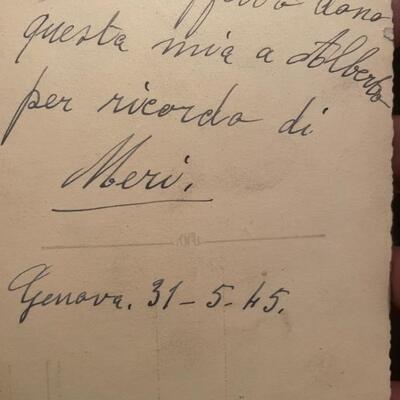 dono
questa mia a Alberto
per ricordo di
Meri.
Genova. 31-5-45.